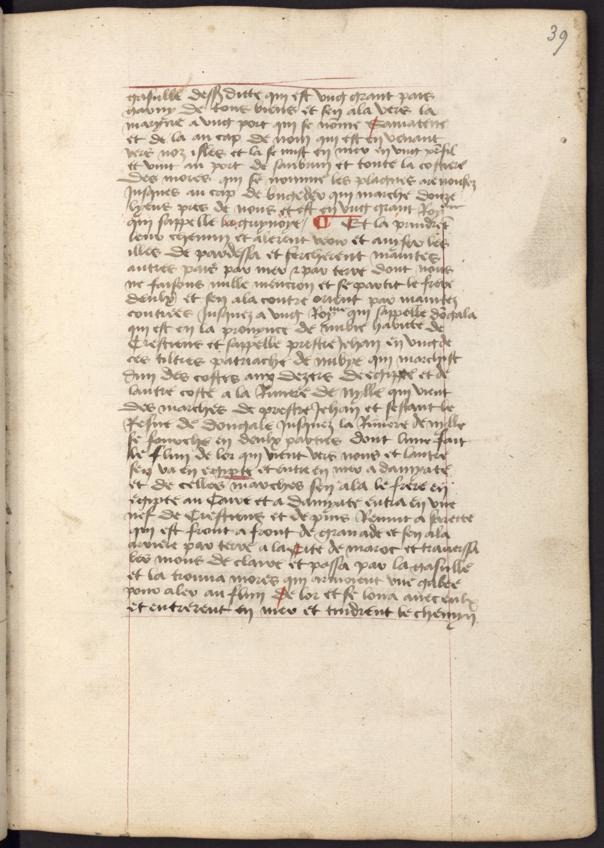 39
gasulle dessusditte qui est ung grant pais
garny de tous biens et sen ala vers la
marine a ung port qui se nome Samateue
et de la au cap de nom qui est en venant
vers noz isles et la se mist en mer en ung
et vint au port de saubrun et toute la costiere
des mores qui se nomme les plaignes areneuses
Jusques au cap de bugeder qui marche douze
lieues pres de nous et est en ung grant Roy^me
qui sappelle la guynoye / Et la prindrent
leur chemin et alerent veoir et auiser les
illes de par dessa et sercherent maintes
autres pais par mer et par terre dont nous
ne faisons nulle mencion et se partit le frere
deulx et sen ala contre orient par maintes
contrees Jusquez a ung Roy^me qui sappelle dongala
qui est en la prouynce de nubie habitee de
Crestiens et sappelle prestre Jehan en ung de
ces tiltres patriache de nubye qui marchist
dun des costes aux dezers de egipte et de
lautre coste a la Riuiere de nylle qui vient
des marches de prestre Jehan et sestant le
Resne de dongale Jusquez la Riuiere de nille
se fourche en deulx parties dont lune fait
le flun de lor qui vient vers nous et lautre
sen va en egipte et entre en mer a damyate
et de celles marches sen ala le frere en
egipte au Caire et a damyate entra en une
nef de Crestiens et depuis Reuint a serette
qui est front a front de granade et sen ala
arriere par terre a la Cite de maroc et trauersa
les mons de claire et passa par la gasulle
et la trouua mores qui armoient une galee
pour aler au flun de lor et se loua auec eulx
et entrerent en mer et tindrent le chemin